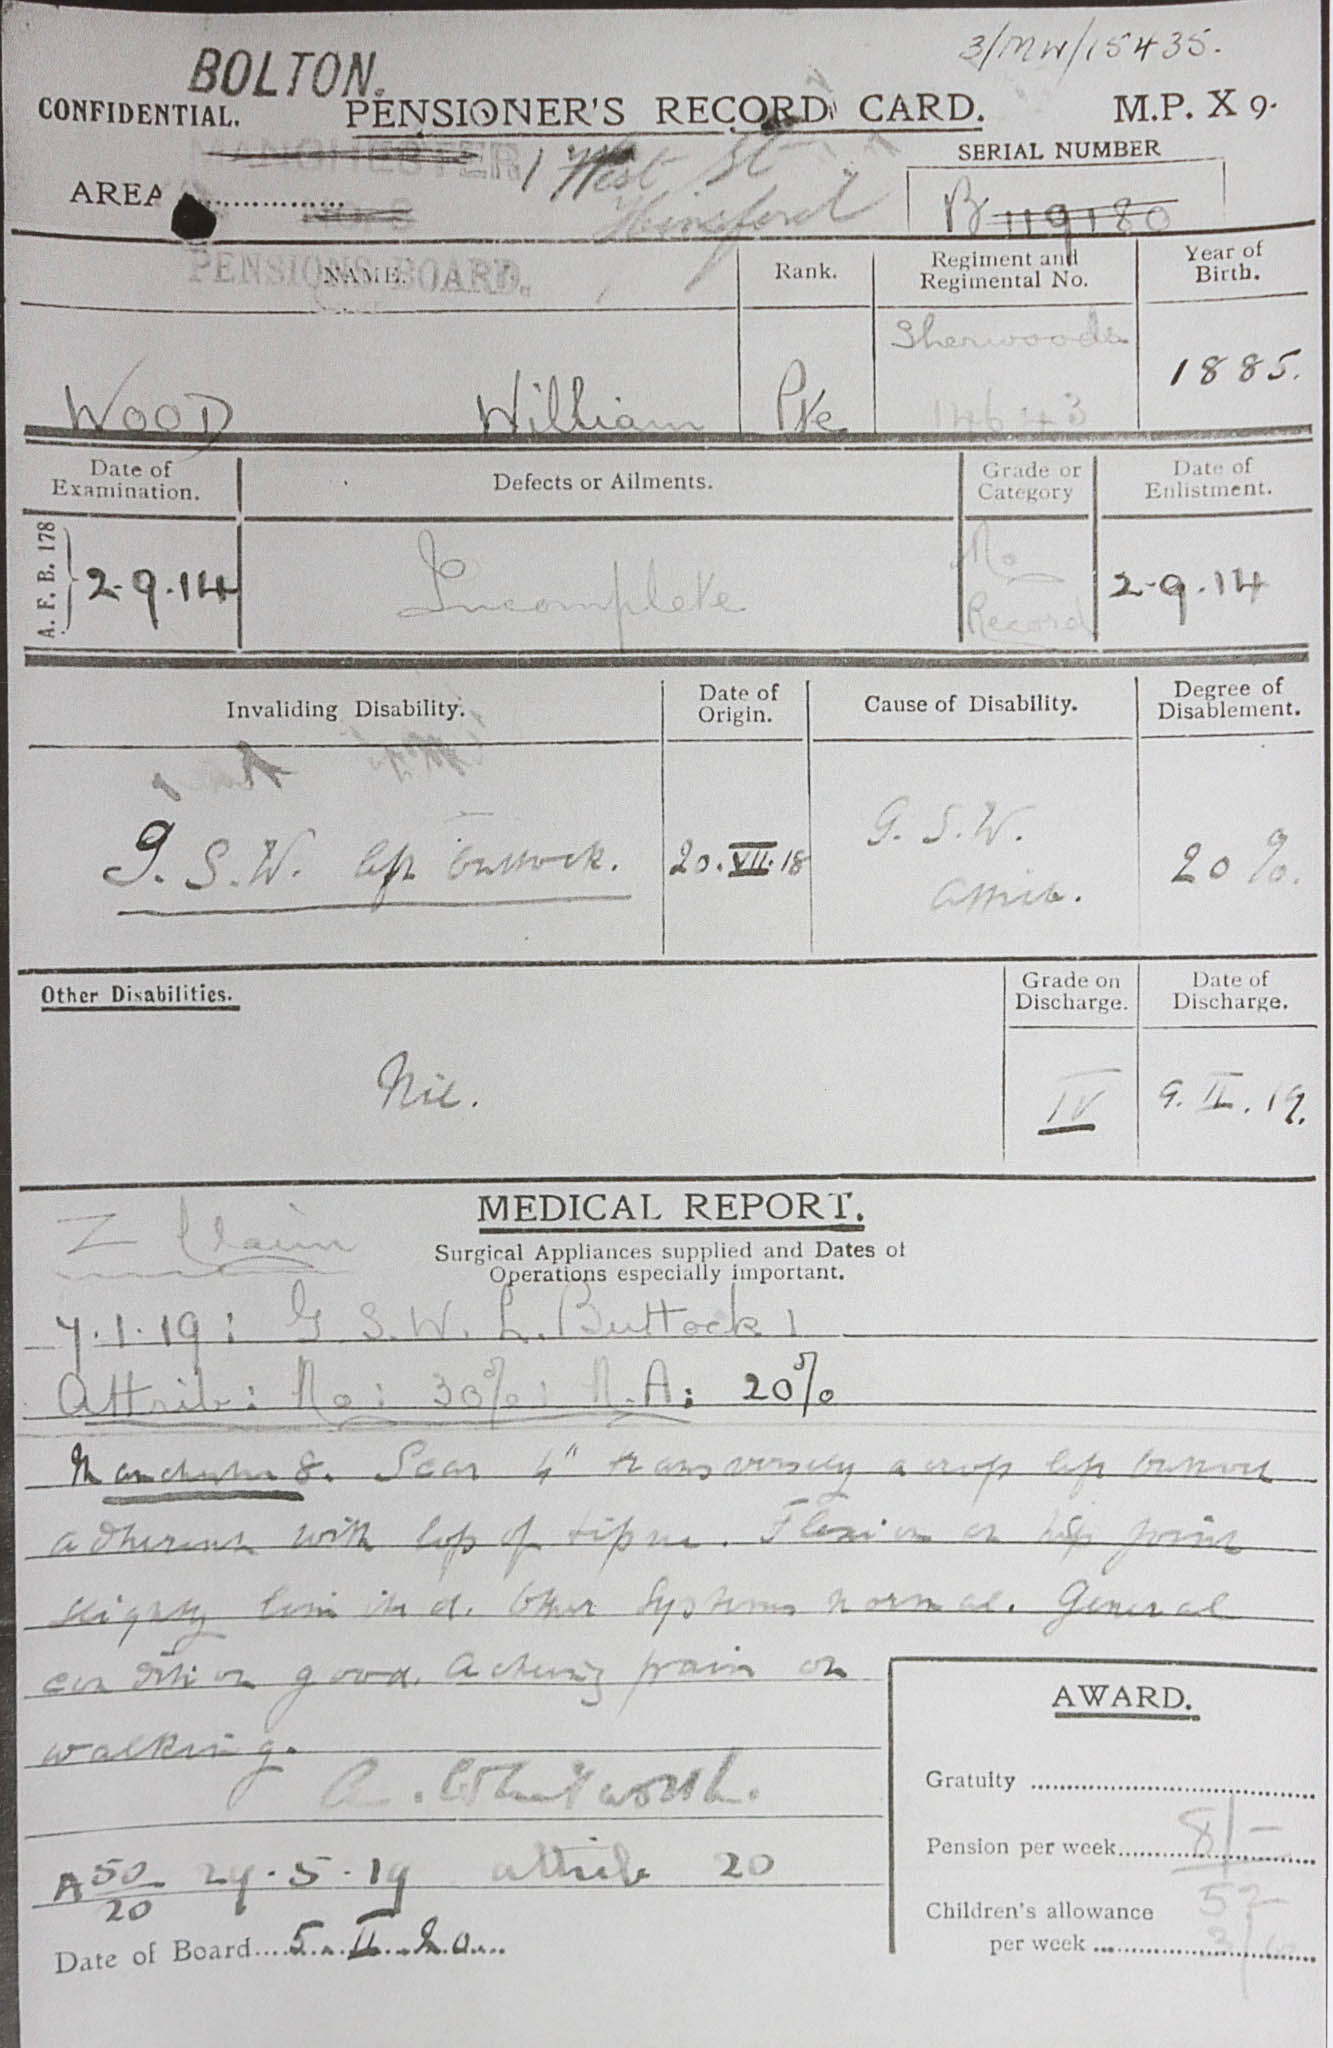 3/MW/15435.
BOLTON.
CONFIDENTIAL. PENSIONER'S RECORD CARD. M.P. X 9.
MANCHESTER
1 West St
SERIAL NUMBER
AREA
B 119180
PENSIONS BOARD.
NAME. Rank. Regiment and Regimental No. Year of Birth.
Sherwoods
WOOD William Pte 14643 1885.
Date of Examination. Defects or Ailments. Grade or Category Date of Enlistment.
A. F. B. 178 2.9.14 Incomplete No Record 2.9.14
Invaliding Disability. Date of Origin. Cause of Disability. Degree of Disablement.
G. S. W. left buttock. 20.VII.18 G. S. W. 20%.
attrib.
Other Disabilities. Grade on Discharge. Date of Discharge.
Nil. IV 9.II.19.
MEDICAL REPORT.
Z Claim
Surgical Appliances supplied and Dates of
Operations especially important.
7.1.19: G S. W. L. Buttock 1
Attrib: No: 30%: N.A: 20%
Manchester 8. Scar 4" transversely across left buttock
adherent with loss of tissue. Flexion on hip joint
slightly limited. Other systems normal. General
condition good. Aching pain on
walking.
AWARD.
A. Whitworth.
Gratuity
Pension per week 8/-
A 50/20 27.5.19 attrib 20
52
Children's allowance
per week
Date of Board 5.II.20